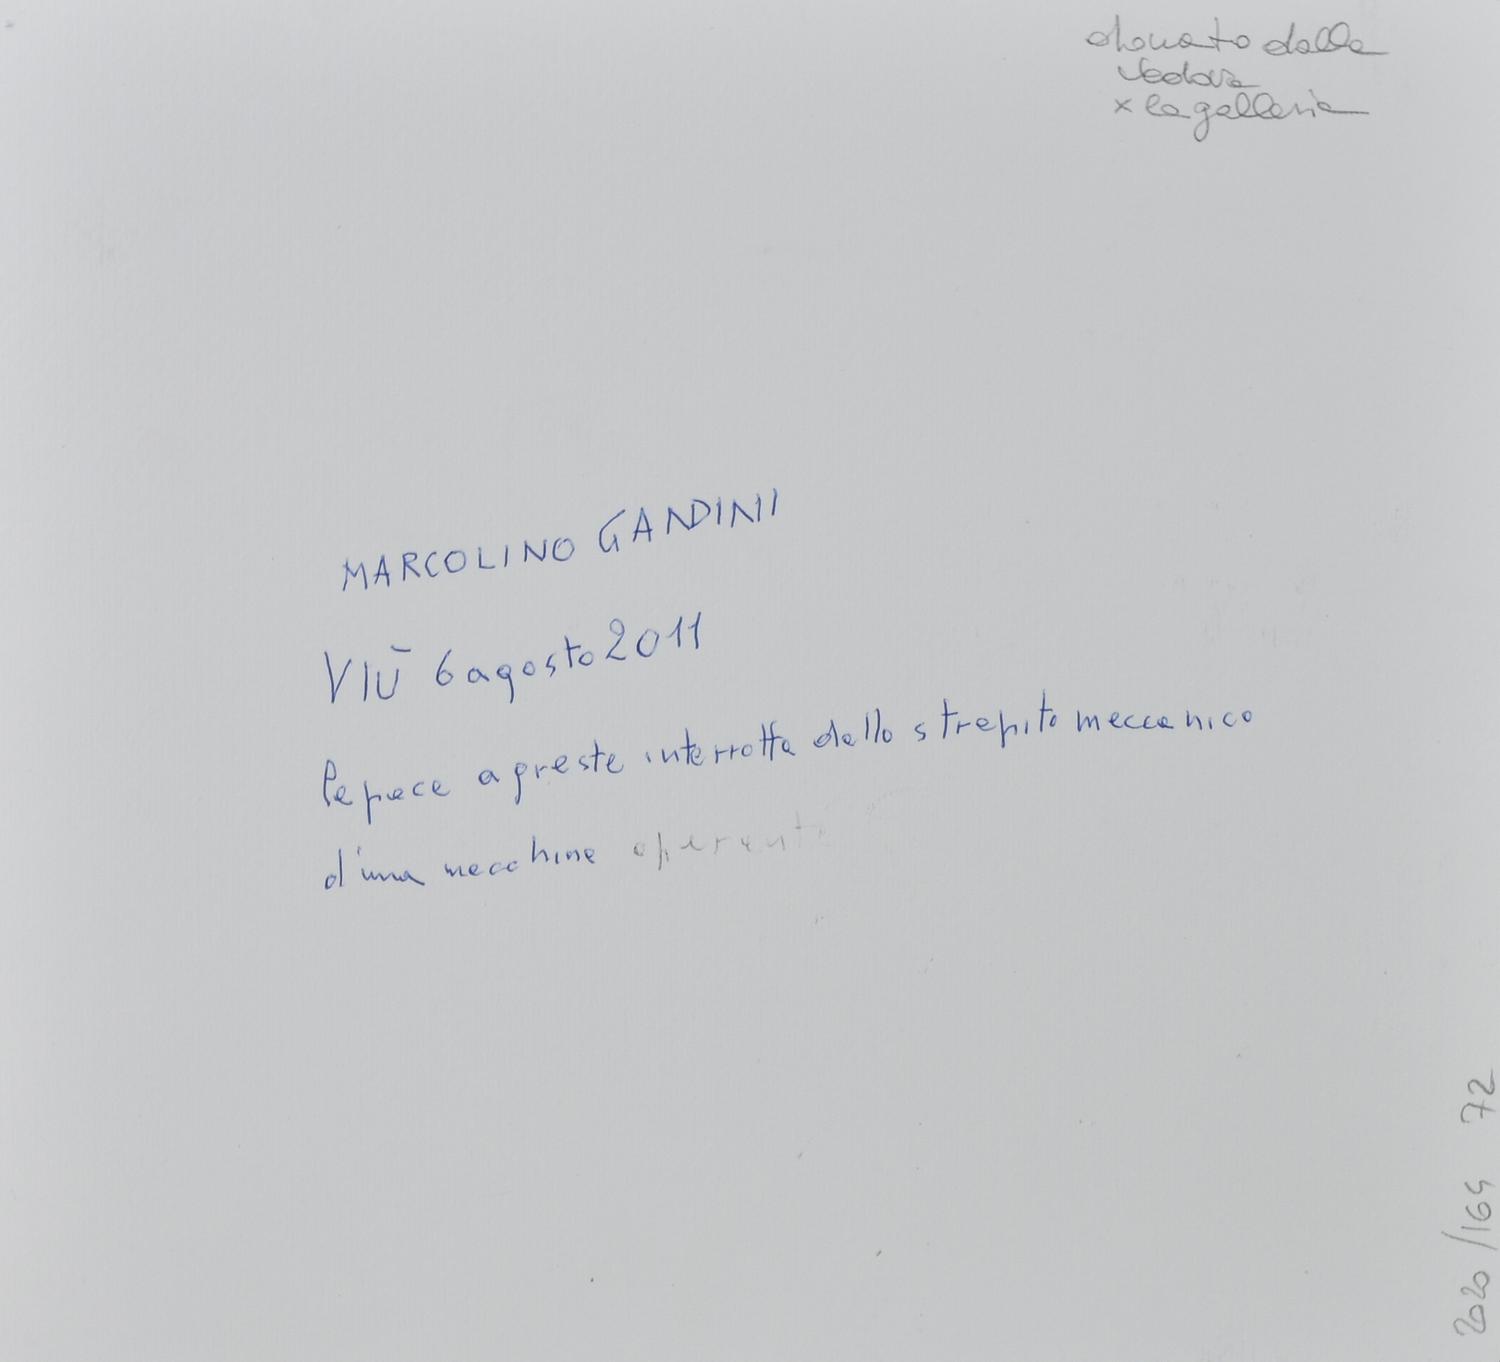 donato dalla
vedova
x la galleria
MARCOLINO GANDINI
VIÙ 6 agosto 2011
la pace agreste interrotta dallo strepito meccanico
d'una macchina operante
2020/164 72